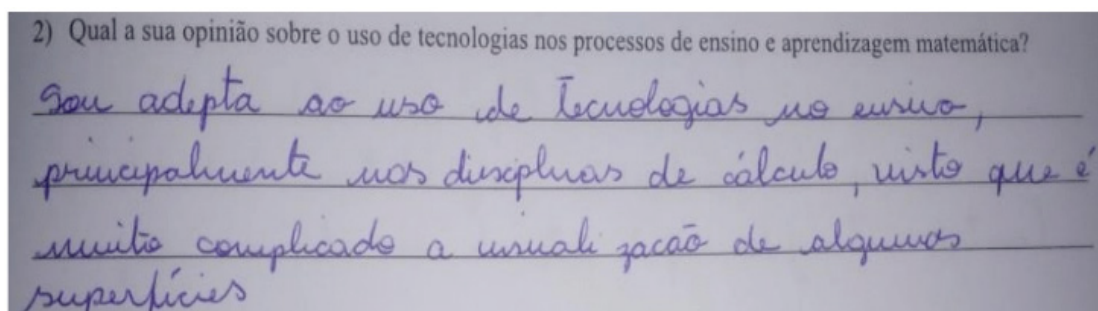 2) Qual a sua opinião sobre o uso de tecnologias nos processos de ensino e aprendizagem matemática?
Sou adepta ao uso de tecnologias no ensino,
principalmente nas disciplinas de cálculo, visto que é
muito complicado a visualização de algumas
superfícies